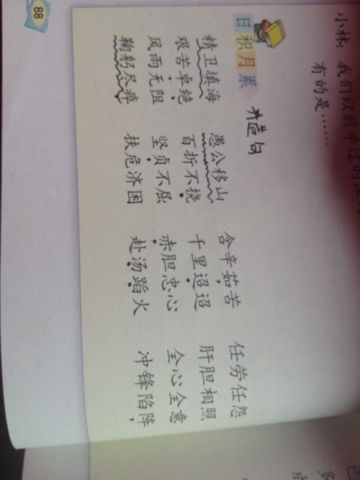 小林，我们以前学过的
有的是……
日积月累
并造句
精卫填海 愚公移山 含辛茹苦 任劳任怨
艰苦卓绝 百折不挠 千里迢迢 肝胆相照
风雨无阻 坚贞不屈 赤胆忠心 全心全意
鞠躬尽瘁 扶危济困 赴汤蹈火 冲锋陷阵
88